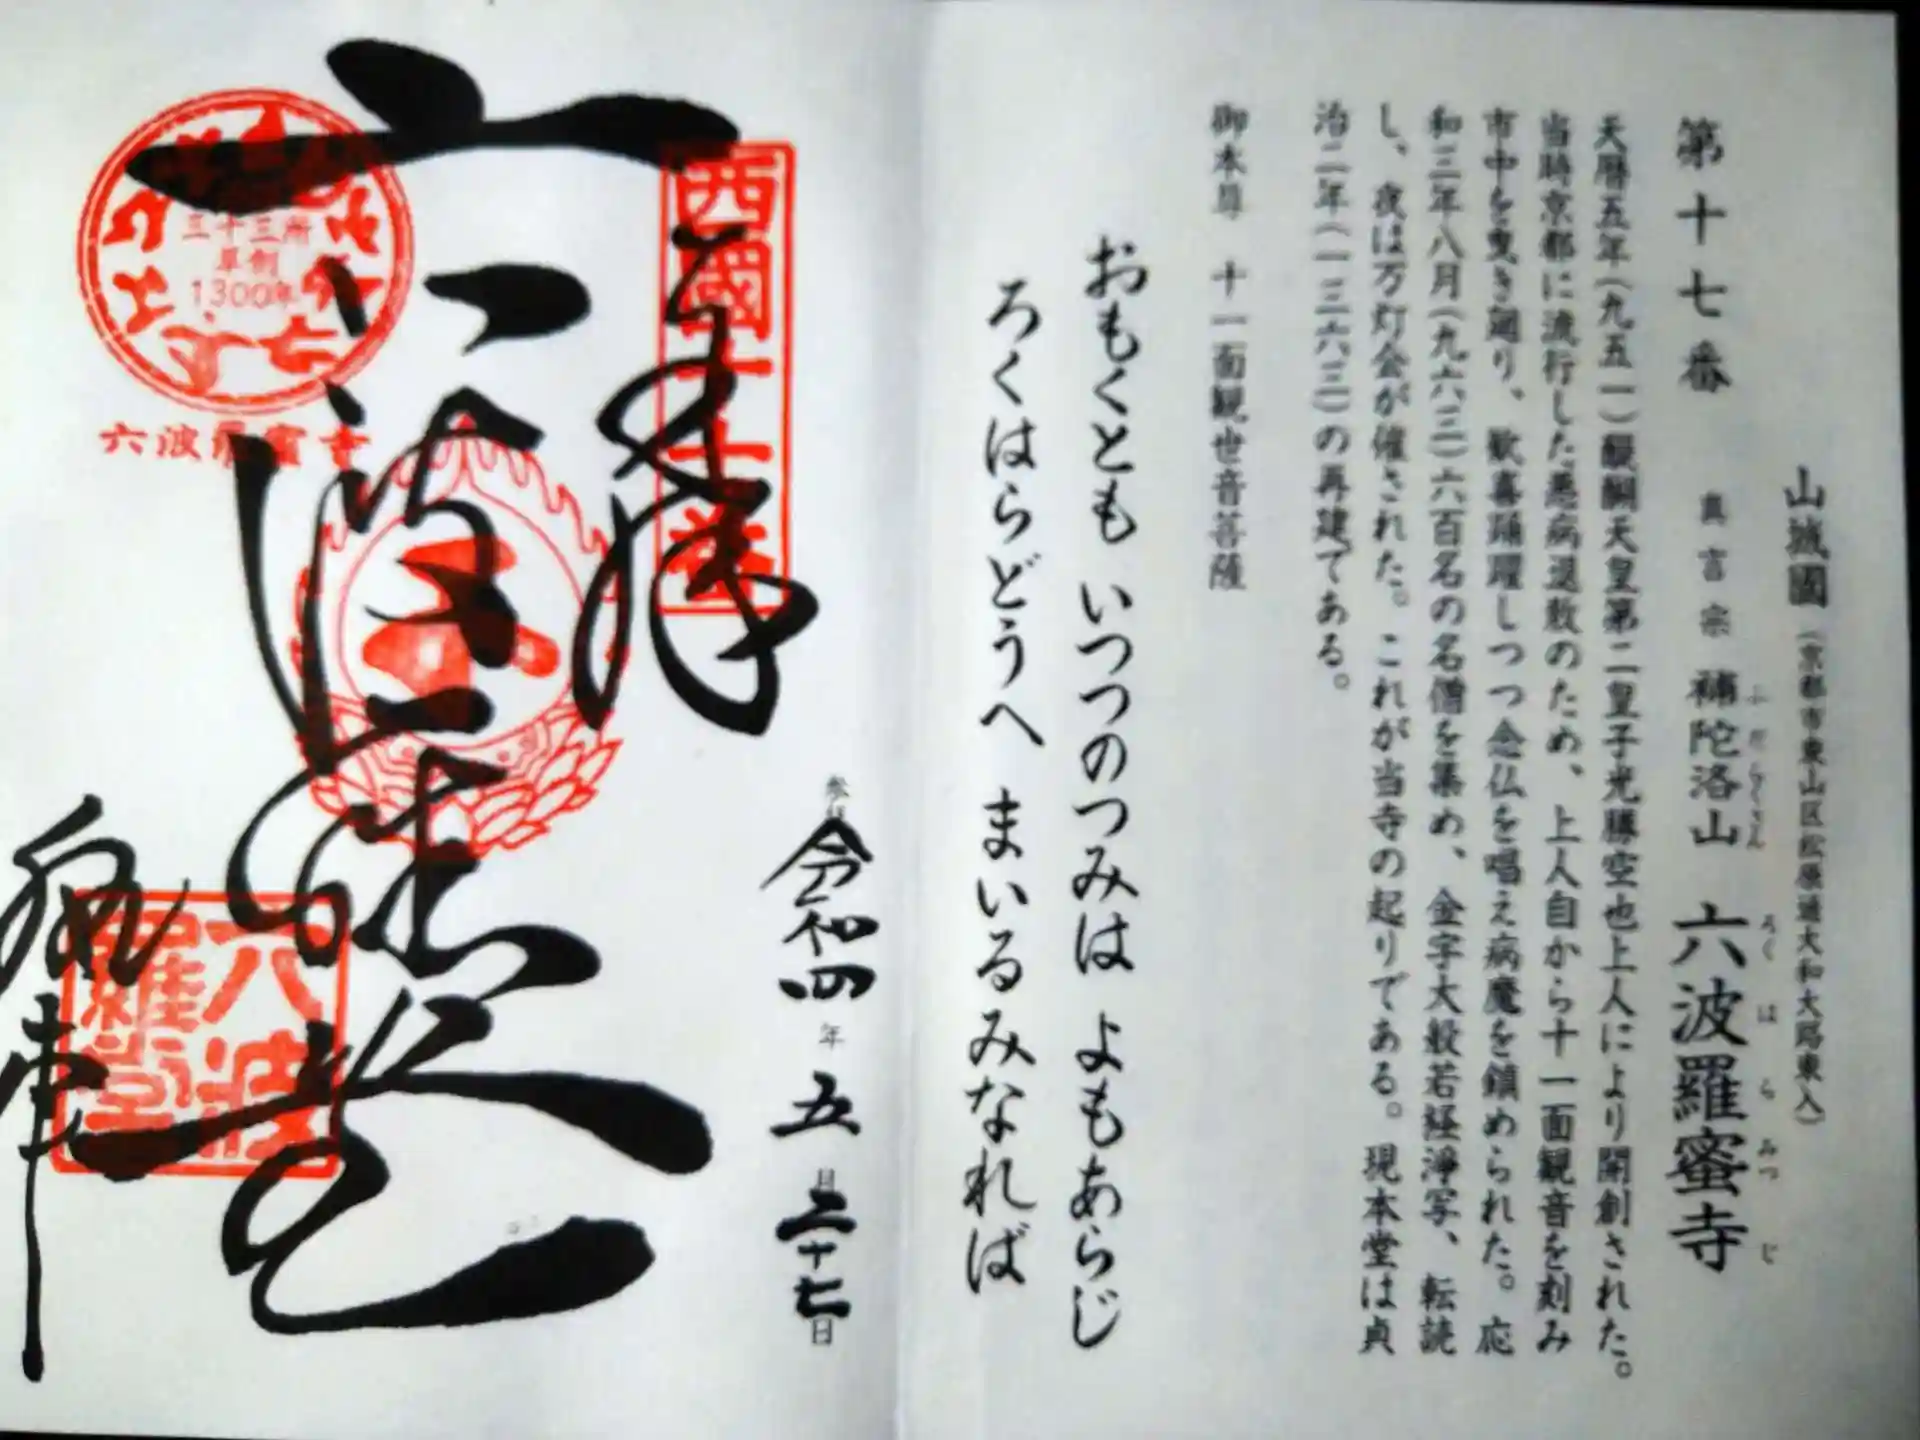 山城國(京都市東山区松原通大和大路東入)
第十七番 真言宗 補陀洛山 六波羅蜜寺
ふだらくさん ろくはらみつじ
天暦五年(九五一)醍醐天皇第二皇子光勝空也上人により開創された。
当時京都に流行した悪病退散のため、上人自から十一面観音を刻み
市中を曳き廻り、歓喜踊躍しつつ念仏を唱え病魔を鎮められた。応
和三年八月(九六三)六百名の名僧を集め、金字大般若経浄写、転読
し、夜は万灯会が催された。これが当寺の起りである。現本堂は貞
治二年(一三六三)の再建である。
御本尊 十一面観世音菩薩
おもくとも いつつのつみは よもあらじ
ろくはらどうへ まいるみなれば
令和四年五月二十七日
西國十七番
奉拝
三十三所
草創
1300年
六波羅蜜寺
六波
羅堂